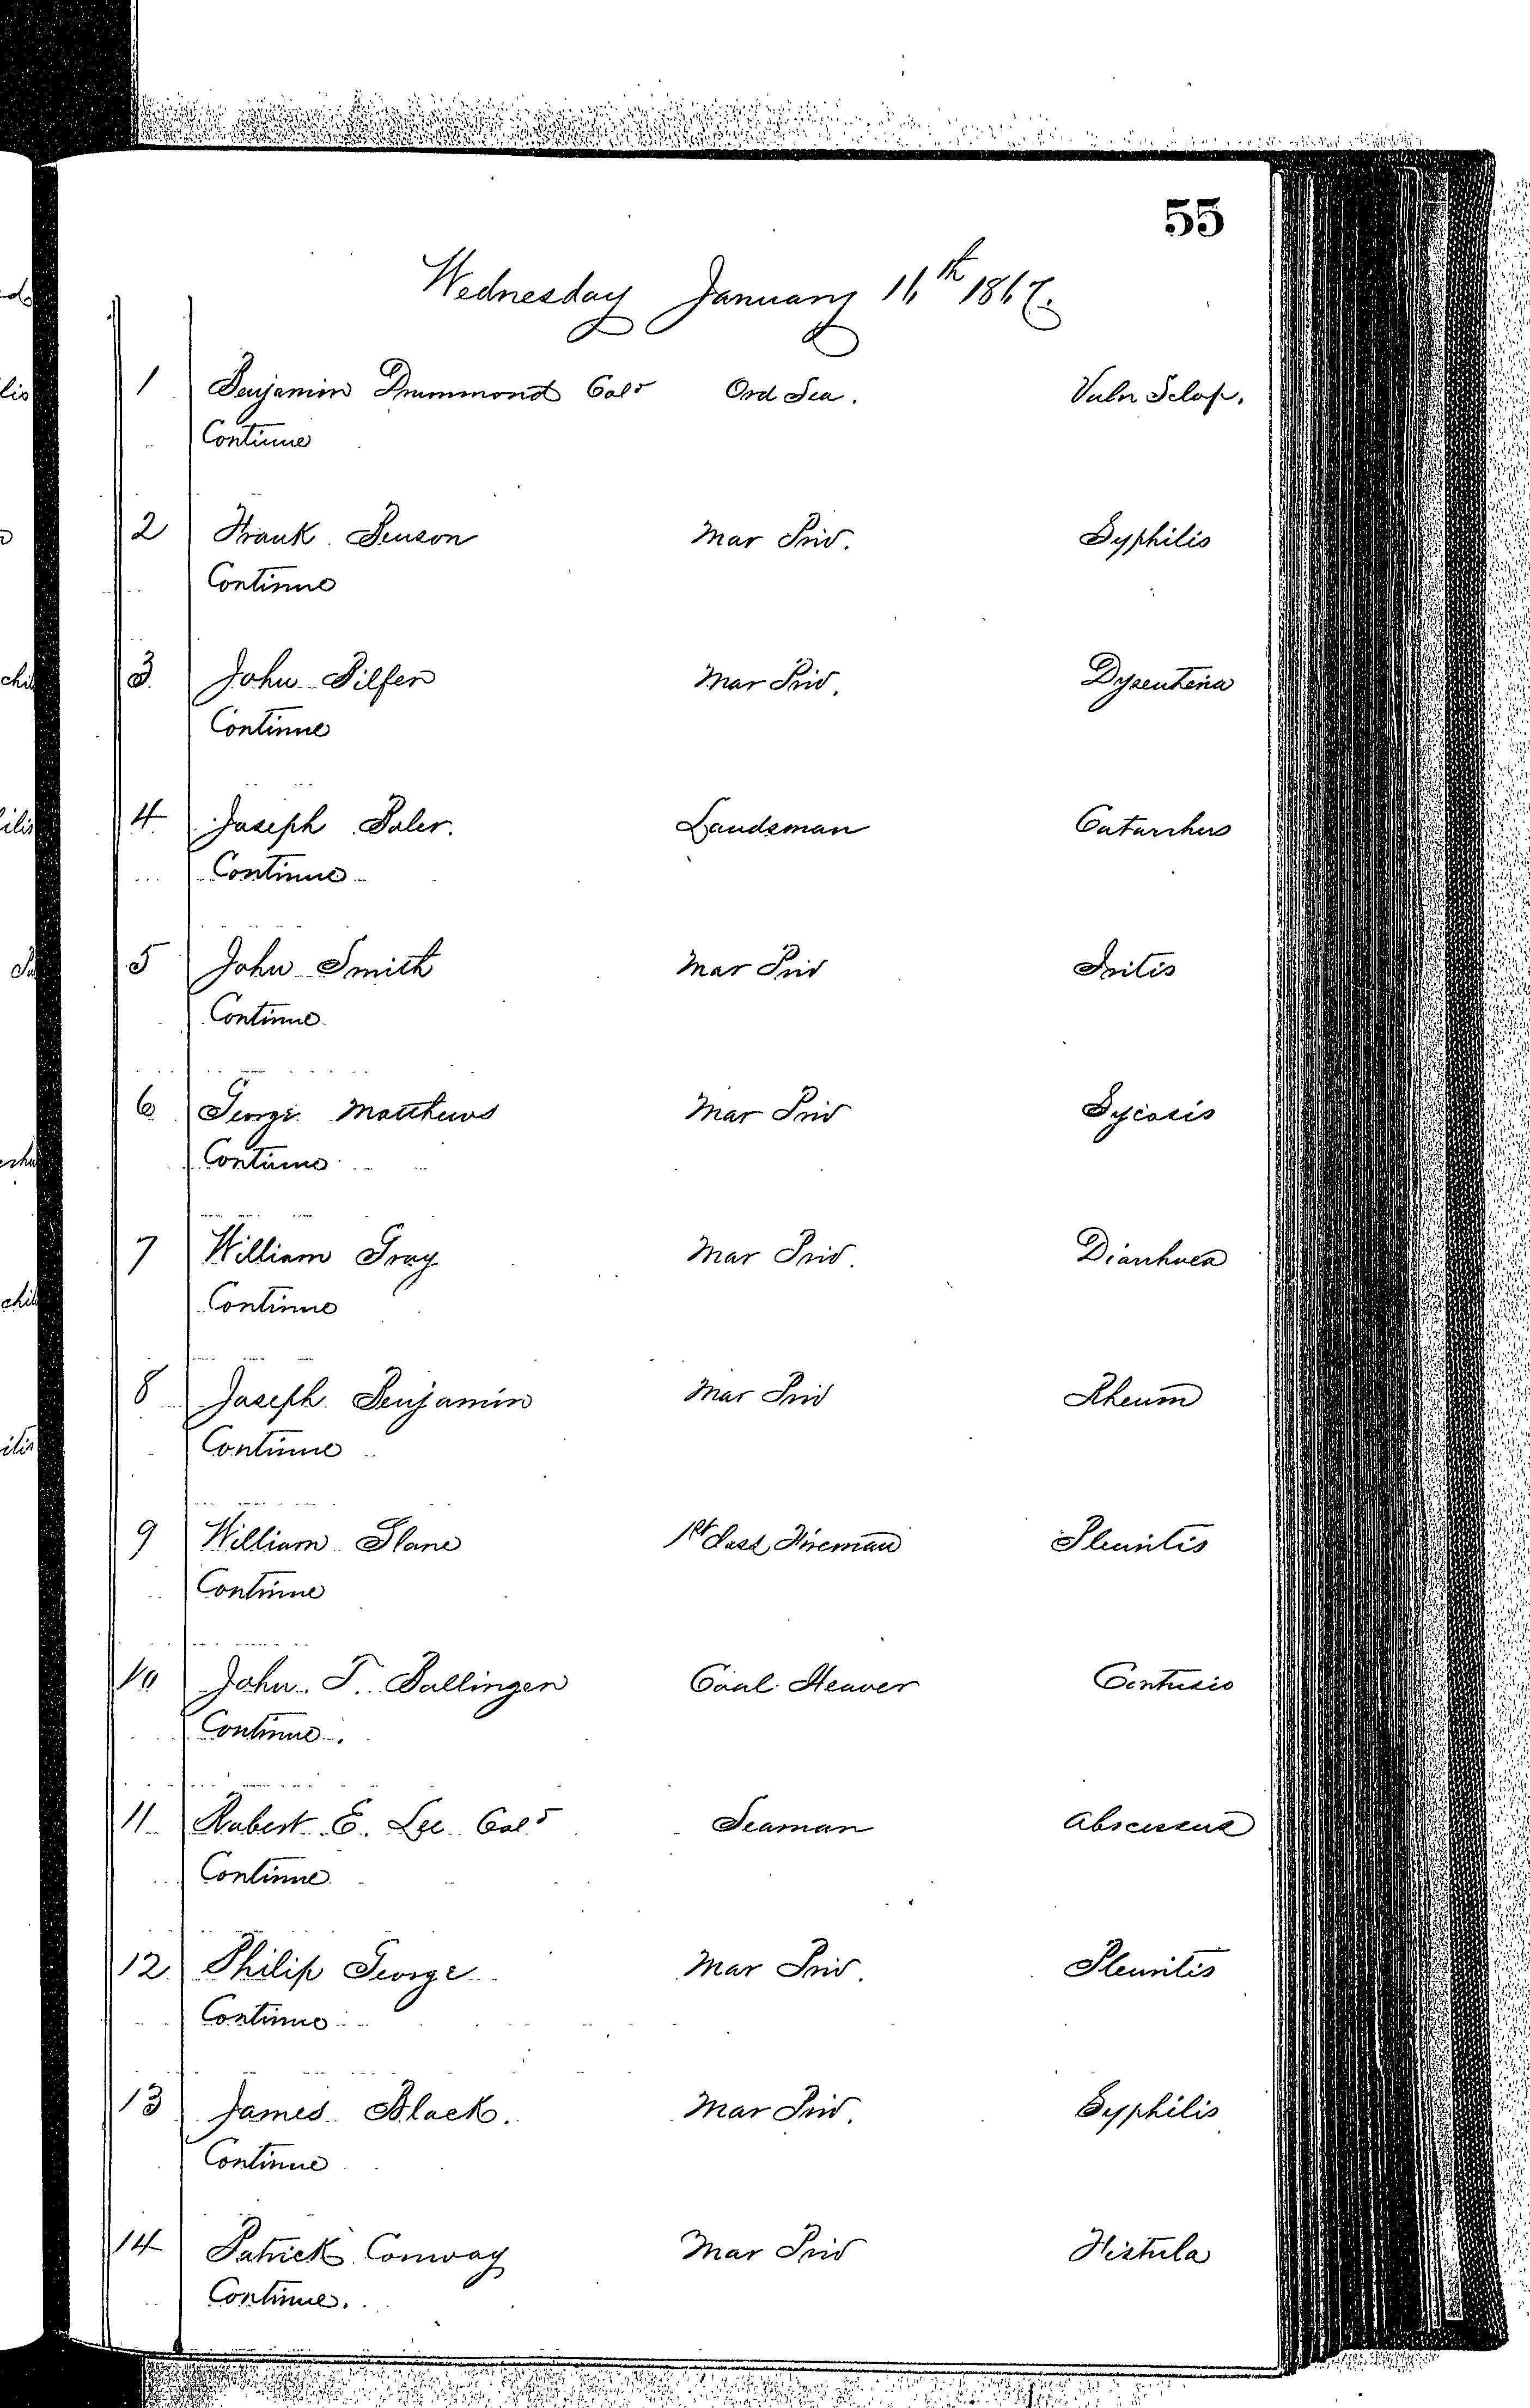 55
Wednesday January 16th 1867.
1 Benjamin Drummond Cold Ord Sea. Vuln Sclop.
Continue
2 Frank Benson Mar Priv. Syphilis
Continue
3 John Pilfer Mar Priv. Dysenteria
Continue
4 Joseph Baler. Landsman Catarrhus
Continue
5 John Smith Mar Priv Iritis
Continue
6 George Matthews Mar Priv Sycosis
Continue
7 William Gray Mar Priv. Diarrhoea
Continue
8 Joseph Benjamin Mar Priv Rheum
Continue
9 William Slane 1st Class Fireman Pleuritis
Continue
10 John T. Ballinger Coal Heaver Contusio
Continue.
11 Robert E. Lee Cold Seaman Abscessus
Continue
12 Philip George Mar Priv. Pleuritis
Continue
13 James Black. Mar Priv. Syphilis
Continue
14 Patrick Conway Mar Priv Fistula
Continue.